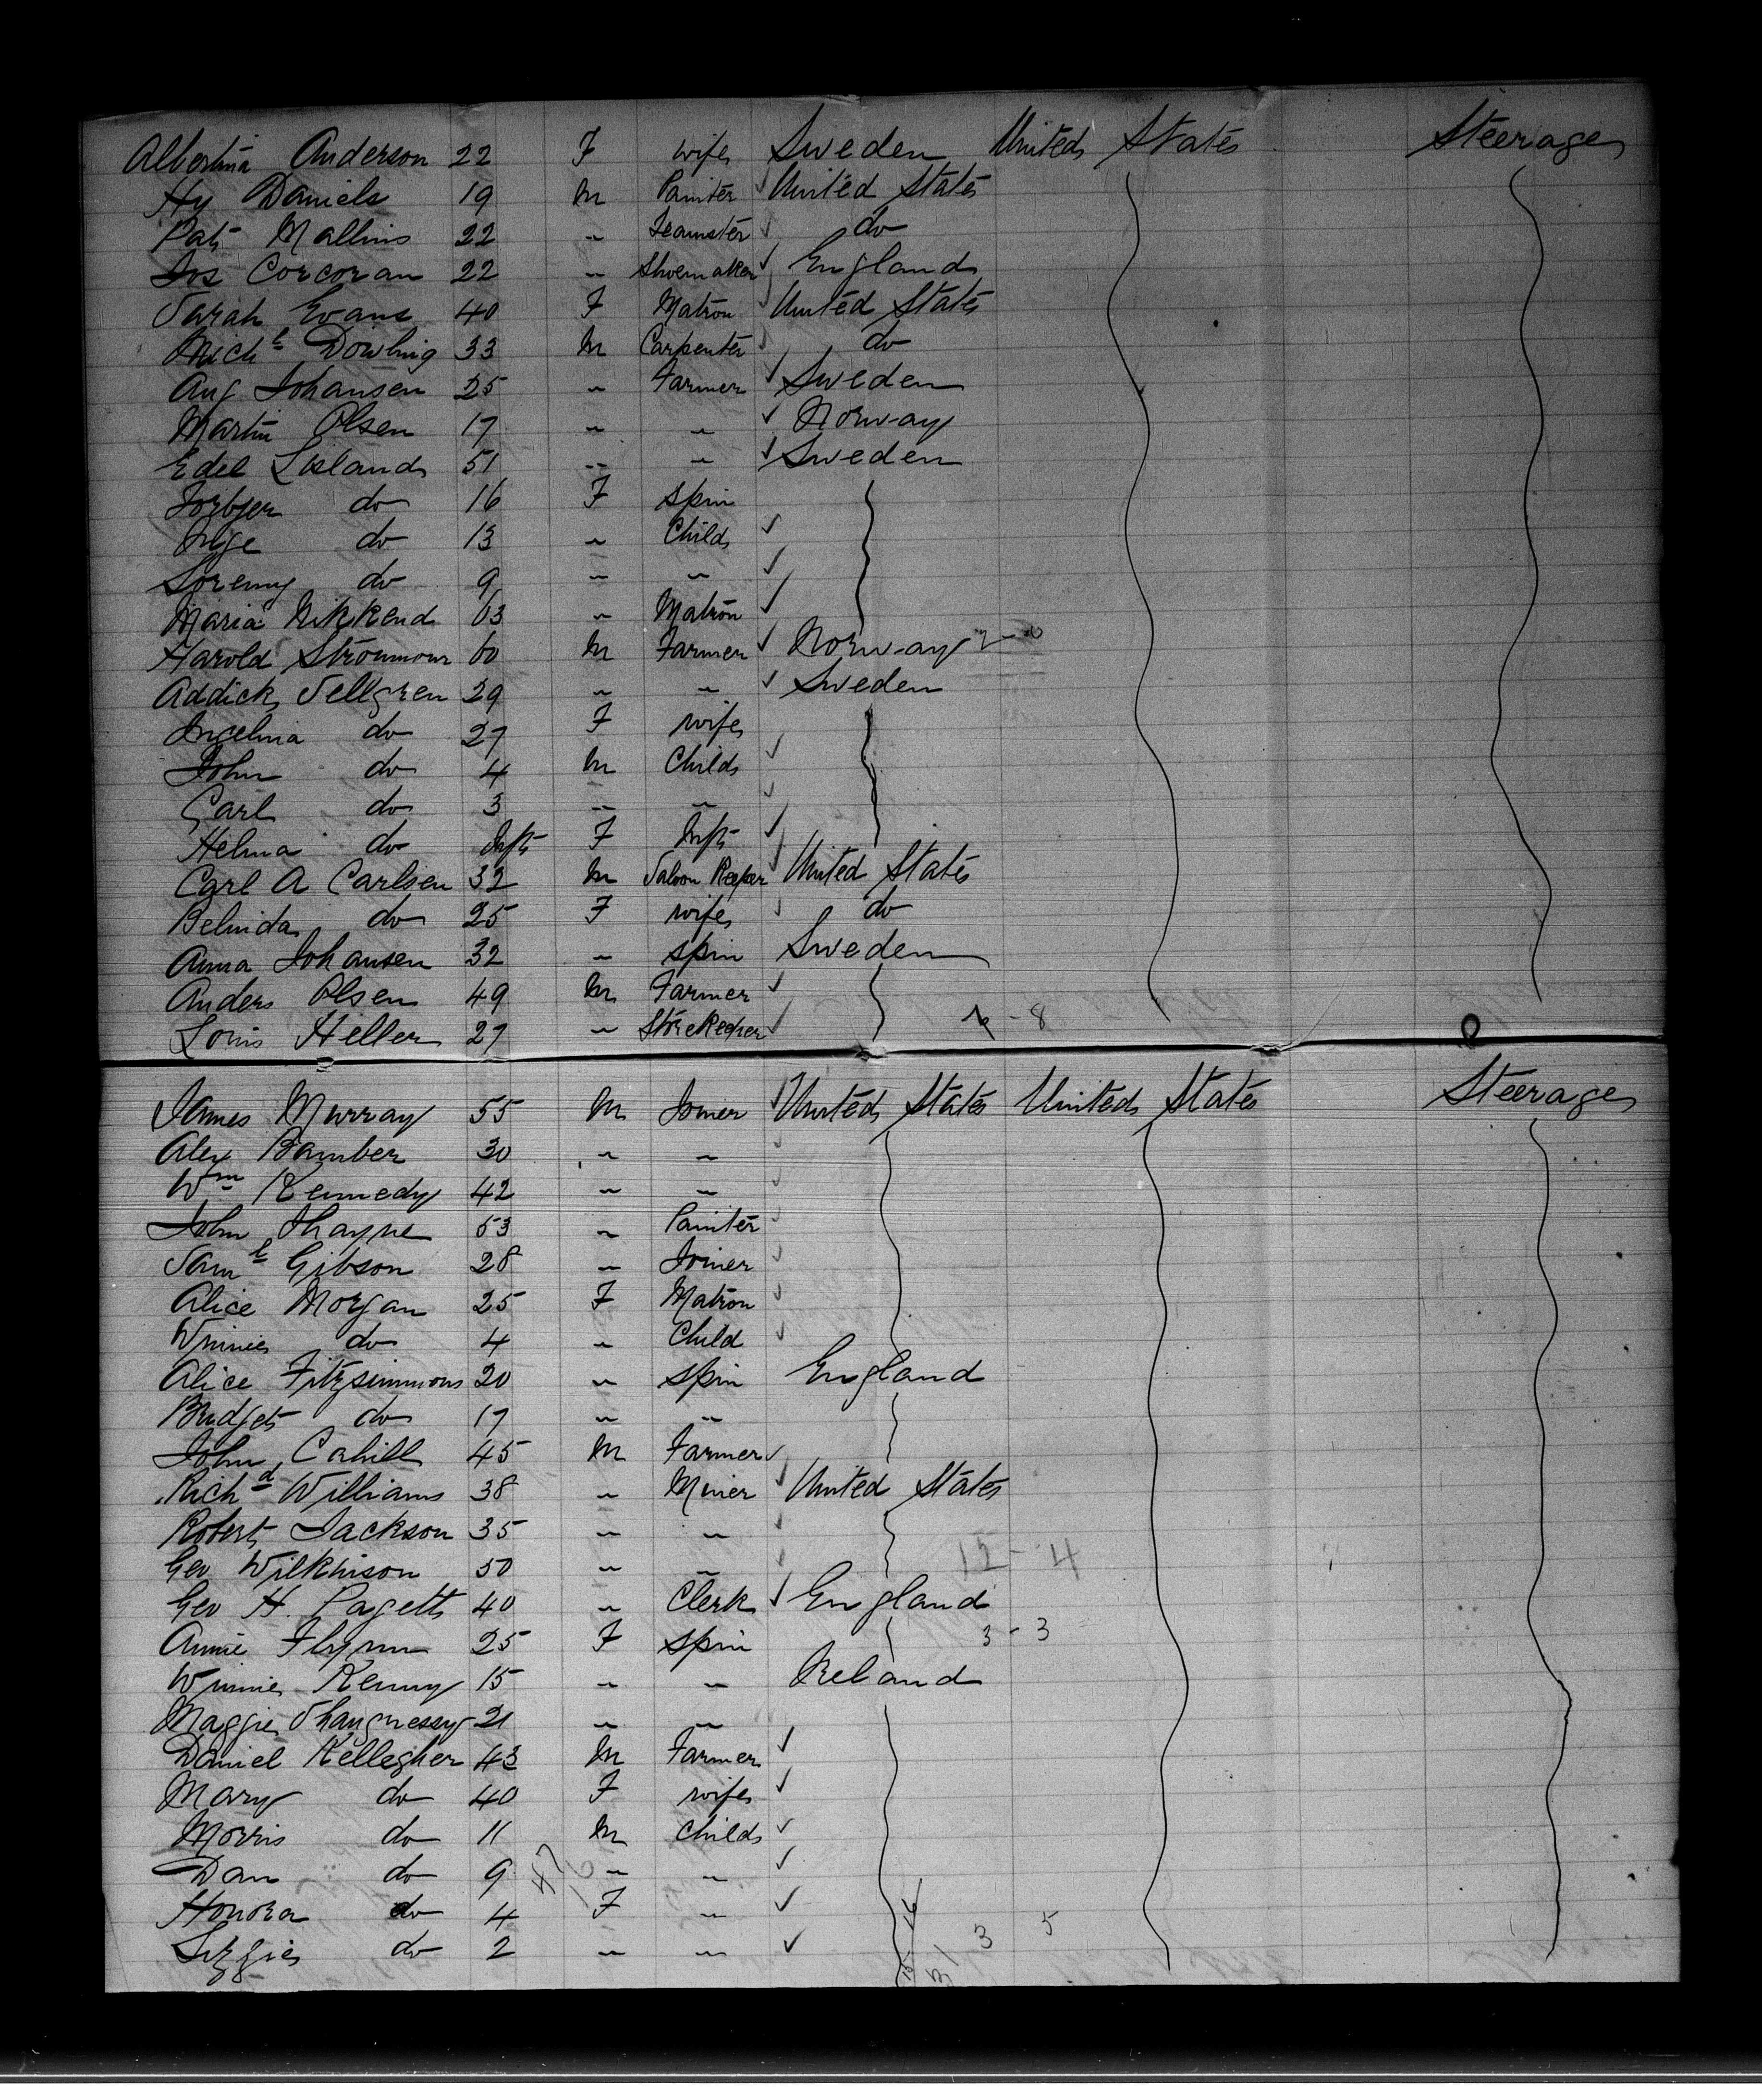 Albertina Anderson 22 F wife Sweden United States Steerage
Hy Daniels 19 M Painter ✓ United States
Pat Mallins 22 " Teamster ✓ do
Jos Corcoran 22 " Shoemaker ✓ England
Sarah Evans 40 F Matron ✓ United States
Michl Dowling 33 M Carpenter ✓ do
Aug Johansen 25 " Farmer ✓ Sweden
Martin Olsen 17 " " ✓ Norway
Edel 51 " " ✓ Sweden
Torbjer do 16 F Spin
Inge do 13 " Child ✓
do 9 " " ✓
Maria Nikkend 63 " Matron ✓
Harold 60 M Farmer ✓ Norway
Addick Sellgren 29 " " ✓ Sweden
Ingelina do 27 F wife
John do 4 M Child ✓
Carl do 3 " " ✓
Helma do Inft F Inft ✓
Carl A Carlsen 32 M Saloon Keeper ✓ United States
Belinda do 25 F wife ✓ do
Anna Johansen 32 " Spin Sweden
Anders Olsen 49 M Farmer ✓
Louis Heller 27 " Storekeeper ✓ - 8
James Murray 55 M Joiner ✓ United States United States Steerage
Alex Bamber 30 " " ✓
Wm Kennedy 42 " " ✓
John Thayne 53 " Painter ✓
Saml Gibson 28 " Joiner ✓
Alice Morgan 25 F Matron ✓
Winnie do 4 " Child ✓
Alice Fitzsimmons 20 " Spin England
Bridget do 17 " "
John Cahill 45 M Farmer ✓
Richd Williams 38 " Miner ✓ United States
Robert Jackson 35 " " ✓
Geo Wilkinson 50 " " ✓ 15 - 4
Geo H. Pagett 40 " Clerk ✓ England
Annie Flynn 25 F Spin 3 - 3
Winnie Kenny 15 " " Ireland
Maggie Shaugnessy 21 " "
Daniel Kellegher 43 M Farmer ✓
Mary do 40 F wife ✓
Morris do 11 M Child ✓
Dan do 9 " " ✓
Honora do 4 F " ✓
Lizzie do 2 " " ✓ 3 5